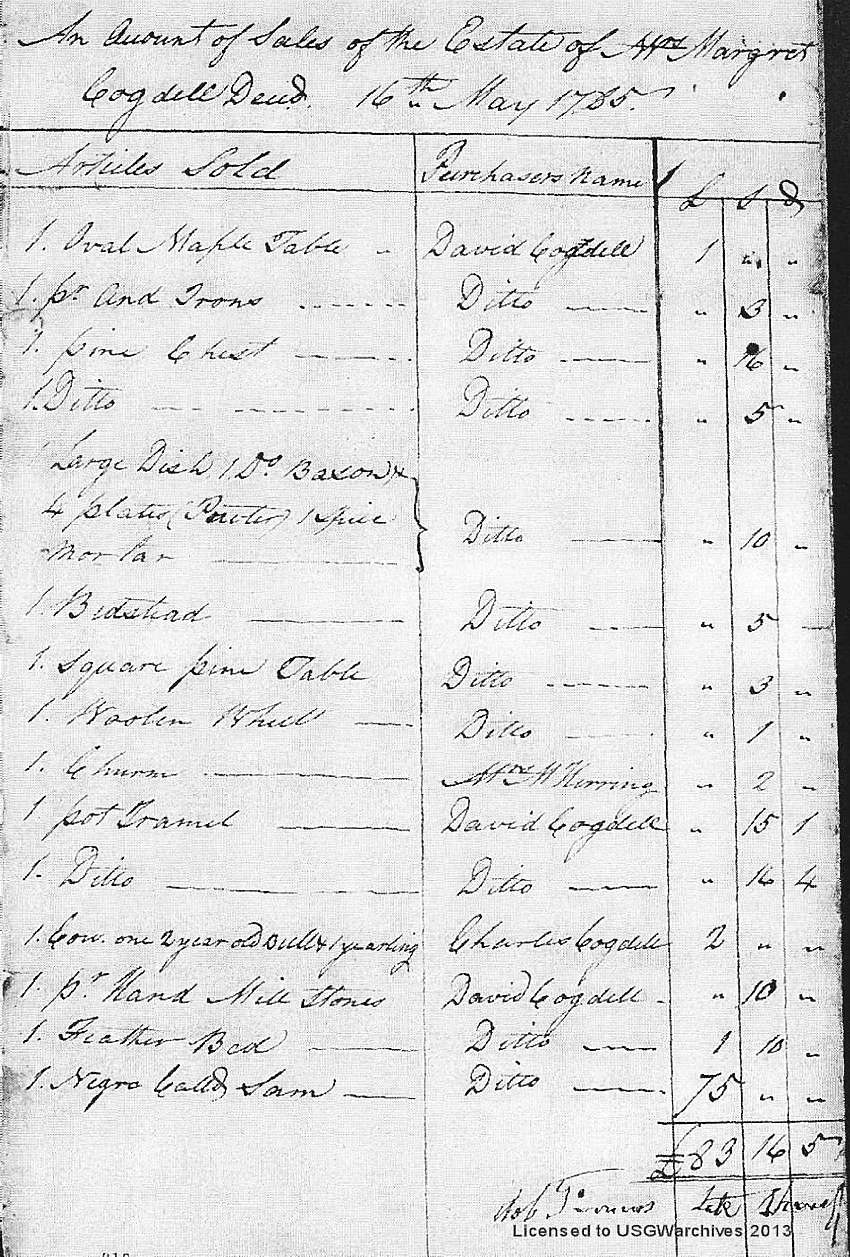 An Account of Sales of the Estate of Mrs Margret
Cogdell Decd. 16th May 1785.
Articles Sold Purchasers Name £ S d
1. Oval Maple Table David Cogdell 1 " "
1. pr And Irons Ditto " 3 "
1. pine Chest Ditto " 16 "
1. Ditto Ditto " 5 "
1 Large Dish, 1 Do Bason &
4 plates (Pewter) 1 Spice
Mortar Ditto " 10 "
1. Bedstead Ditto " 5 —
1. Square pine Table Ditto " 3 "
1. Woolen Wheel Ditto " 1 "
1. Churn Mrs M Herring " 2 "
1 pot Tramel David Cogdell " 15 1
1. Ditto Ditto " 16 4
1. Cow. one 2 year old Bull & 1 yearling Charles Cogdell 2 " "
1. pr Hand Mill Stones David Cogdell " 10 "
1. Feather Bed Ditto 1 10 "
1. Negro Calld Sam Ditto 75 " "
£83 16 5
Rob
Licensed to USGWarchives 2013